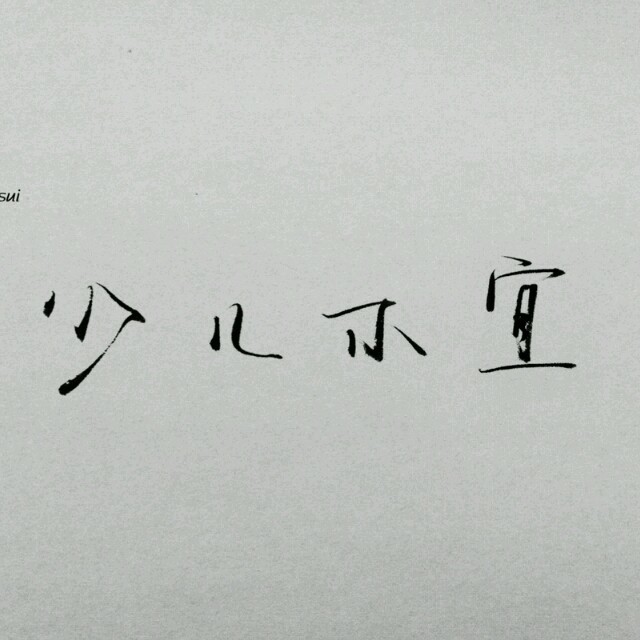 sui
少儿不宜